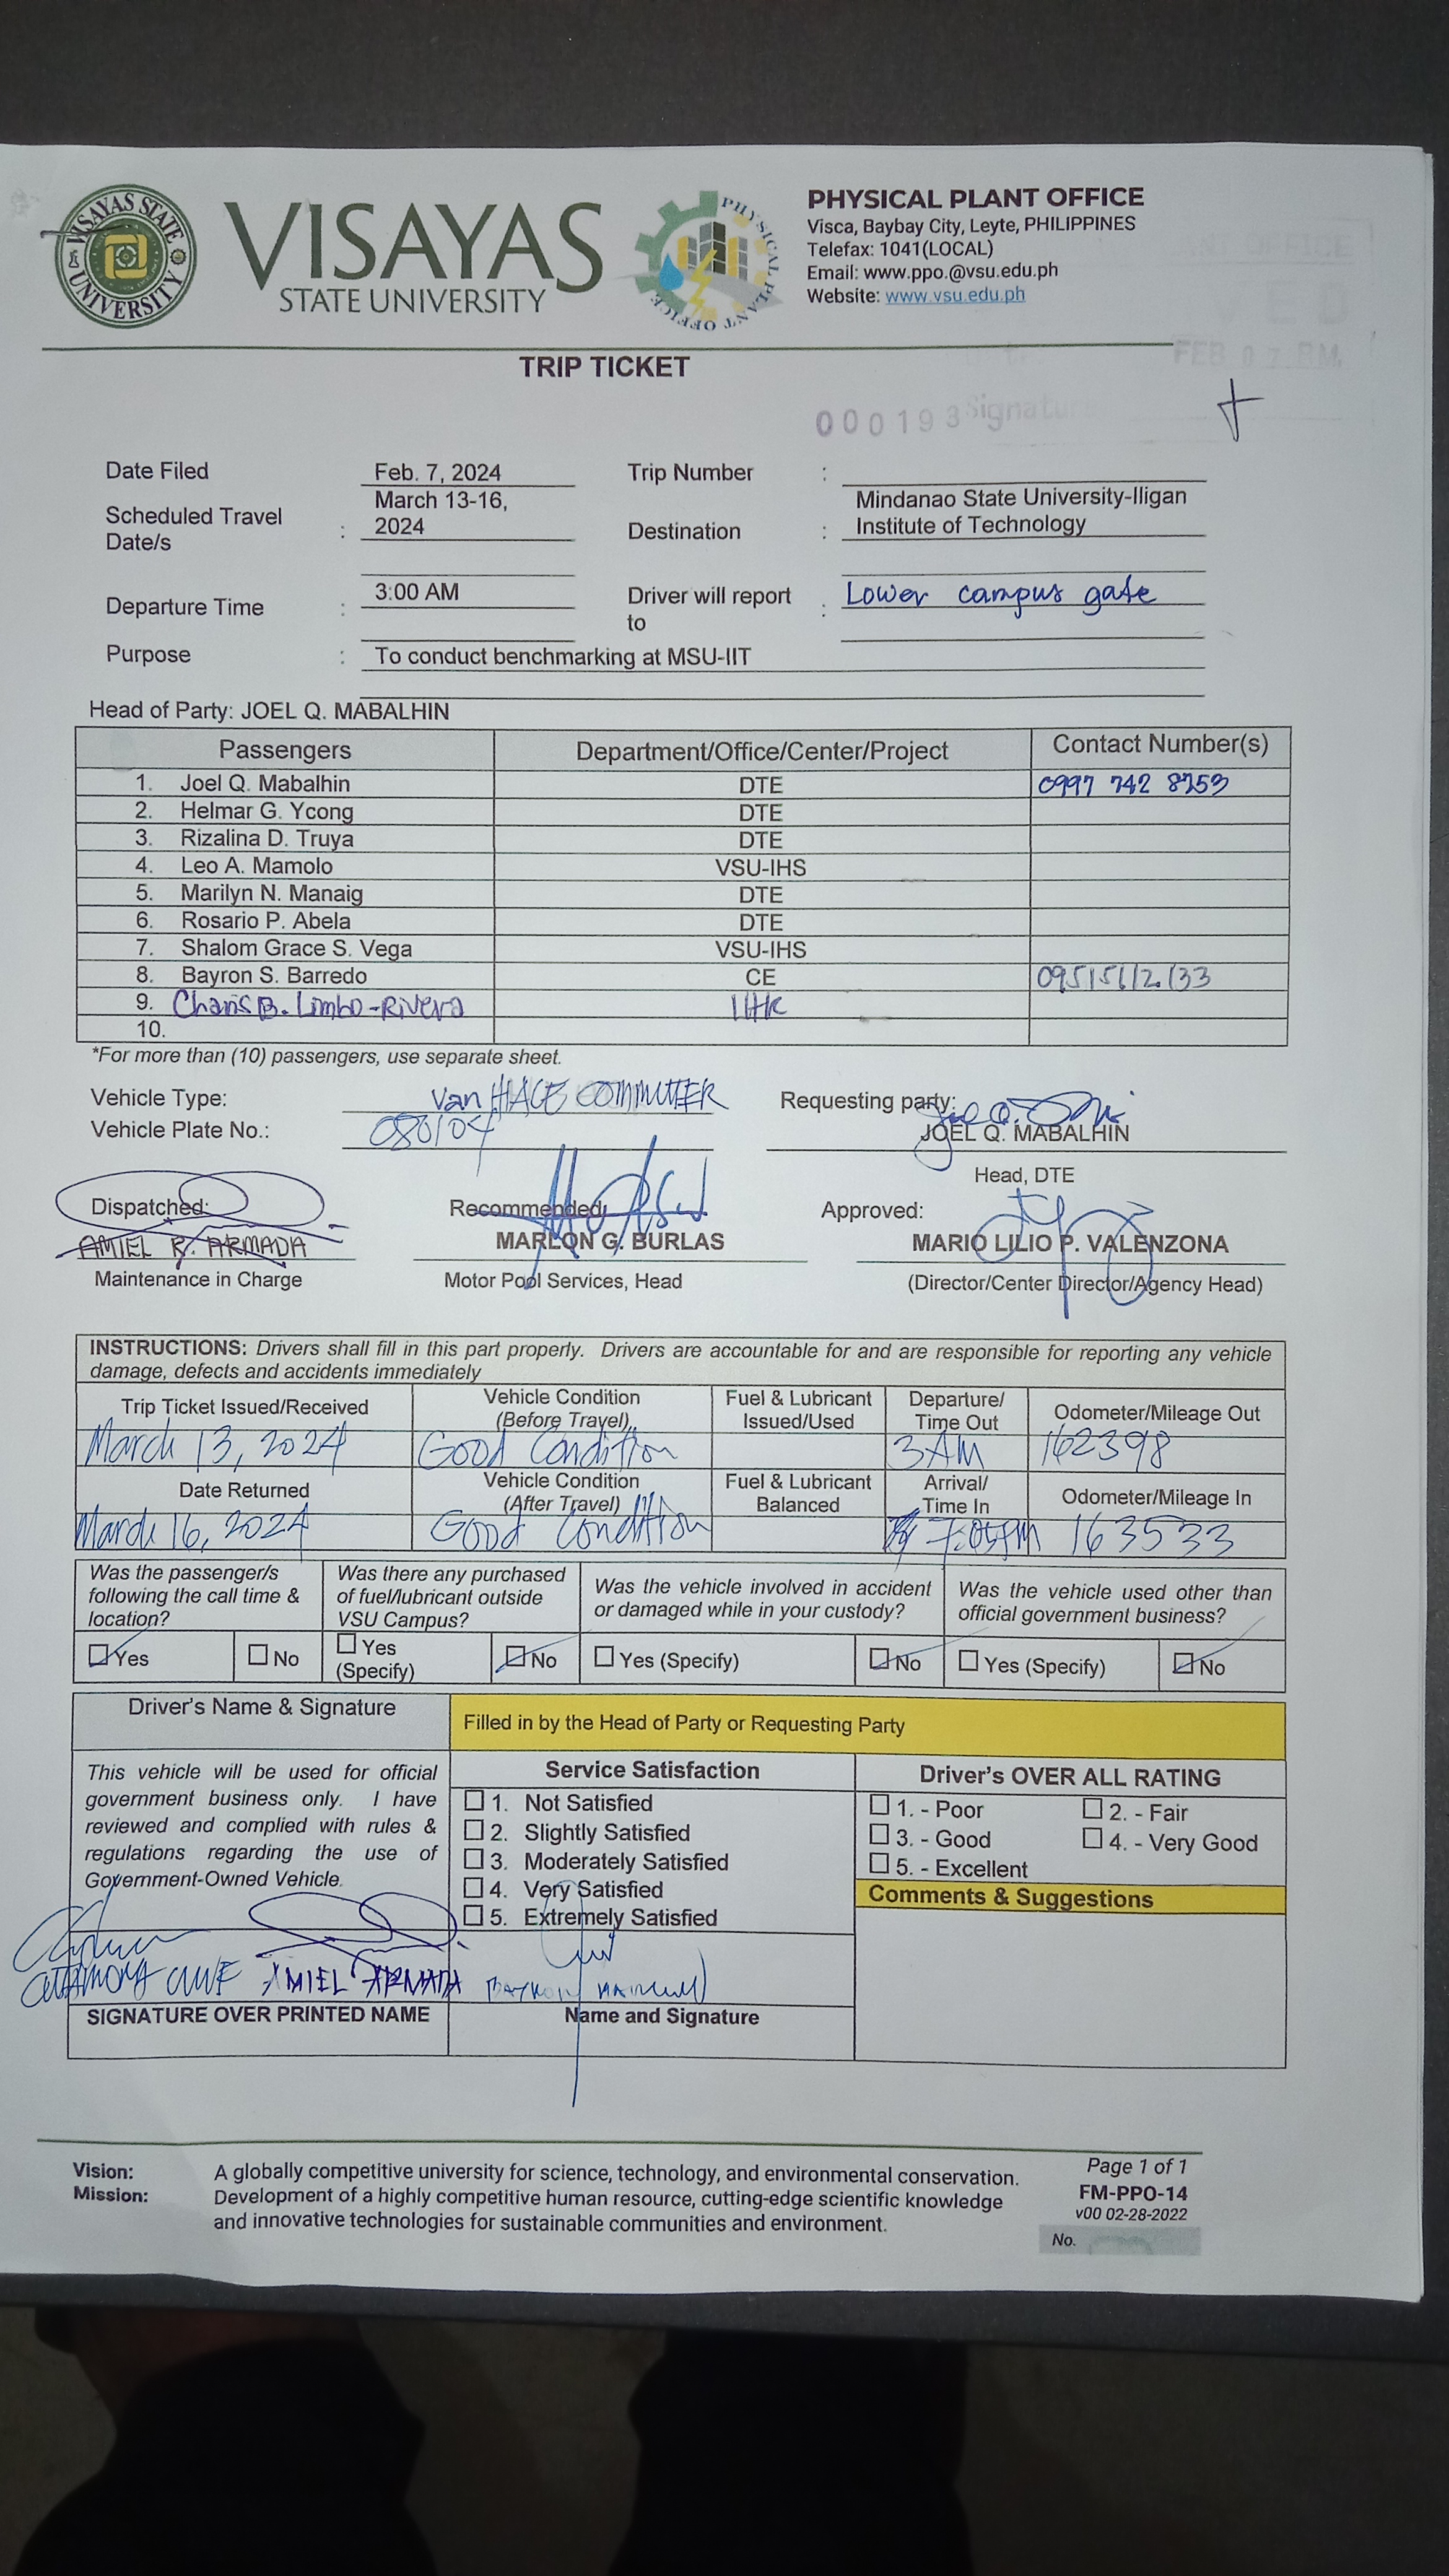 VISAYAS STATE UNIVERSITY
VISAYAS
STATE UNIVERSITY
PHYSICAL PLANT OFFICE
PHYSICAL PLANT OFFICE
Visca, Baybay City, Leyte, PHILIPPINES
Telefax: 1041(LOCAL)
Email: www.ppo.@vsu.edu.ph
Website: www.vsu.edu.ph
TRIP TICKET
000193
Signature
Date Filed Feb. 7, 2024 Trip Number :
Scheduled Travel Date/s : March 13-16, 2024 Destination : Mindanao State University-Iligan Institute of Technology
Departure Time : 3:00 AM Driver will report to : Lower campus gate
Purpose : To conduct benchmarking at MSU-IIT
Head of Party: JOEL Q. MABALHIN
Passengers Department/Office/Center/Project Contact Number(s)
1. Joel Q. Mabalhin DTE 0997 742 8753
2. Helmar G. Ycong DTE
3. Rizalina D. Truya DTE
4. Leo A. Mamolo VSU-IHS
5. Marilyn N. Manaig DTE
6. Rosario P. Abela DTE
7. Shalom Grace S. Vega VSU-IHS
8. Bayron S. Barredo CE
9. Charis B. Limbo-Rivera
10.
*For more than (10) passengers, use separate sheet.
Vehicle Type: Van HIACE COMMUTER Requesting party:
Vehicle Plate No.: 080104 JOEL Q. MABALHIN
Head, DTE
Dispatched: Recommended: Approved:
AMIEL R. ARMADA MARLON G. BURLAS MARIO LILIO P. VALENZONA
Maintenance in Charge Motor Pool Services, Head (Director/Center Director/Agency Head)
INSTRUCTIONS: Drivers shall fill in this part properly. Drivers are accountable for and are responsible for reporting any vehicle
damage, defects and accidents immediately
Trip Ticket Issued/Received Vehicle Condition (Before Travel) Fuel & Lubricant Issued/Used Departure/ Time Out Odometer/Mileage Out
March 13, 2024 Good Condition 3AM 162398
Date Returned Vehicle Condition (After Travel) Fuel & Lubricant Balanced Arrival/ Time In Odometer/Mileage In
March 16, 2024 Good Condition 7:05PM 163533
Was the passenger/s following the call time & location? Was there any purchased of fuel/lubricant outside VSU Campus? Was the vehicle involved in accident or damaged while in your custody? Was the vehicle used other than official government business?
Yes No Yes (Specify) No Yes (Specify) No Yes (Specify) No
Driver's Name & Signature Filled in by the Head of Party or Requesting Party
This vehicle will be used for official
government business only. I have
reviewed and complied with rules &
regulations regarding the use of
Government-Owned Vehicle.
Service Satisfaction
1. Not Satisfied
2. Slightly Satisfied
3. Moderately Satisfied
4. Very Satisfied
5. Extremely Satisfied
Driver's OVER ALL RATING
1. - Poor 2. - Fair
3. - Good 4. - Very Good
5. - Excellent
Comments & Suggestions
AMIEL ARMADA
SIGNATURE OVER PRINTED NAME Name and Signature
Vision: A globally competitive university for science, technology, and environmental conservation.
Mission: Development of a highly competitive human resource, cutting-edge scientific knowledge
and innovative technologies for sustainable communities and environment.
Page 1 of 1
FM-PPO-14
v00 02-28-2022
No.